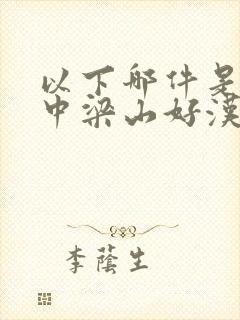 以下哪件是
中梁山好漢
李蔭生